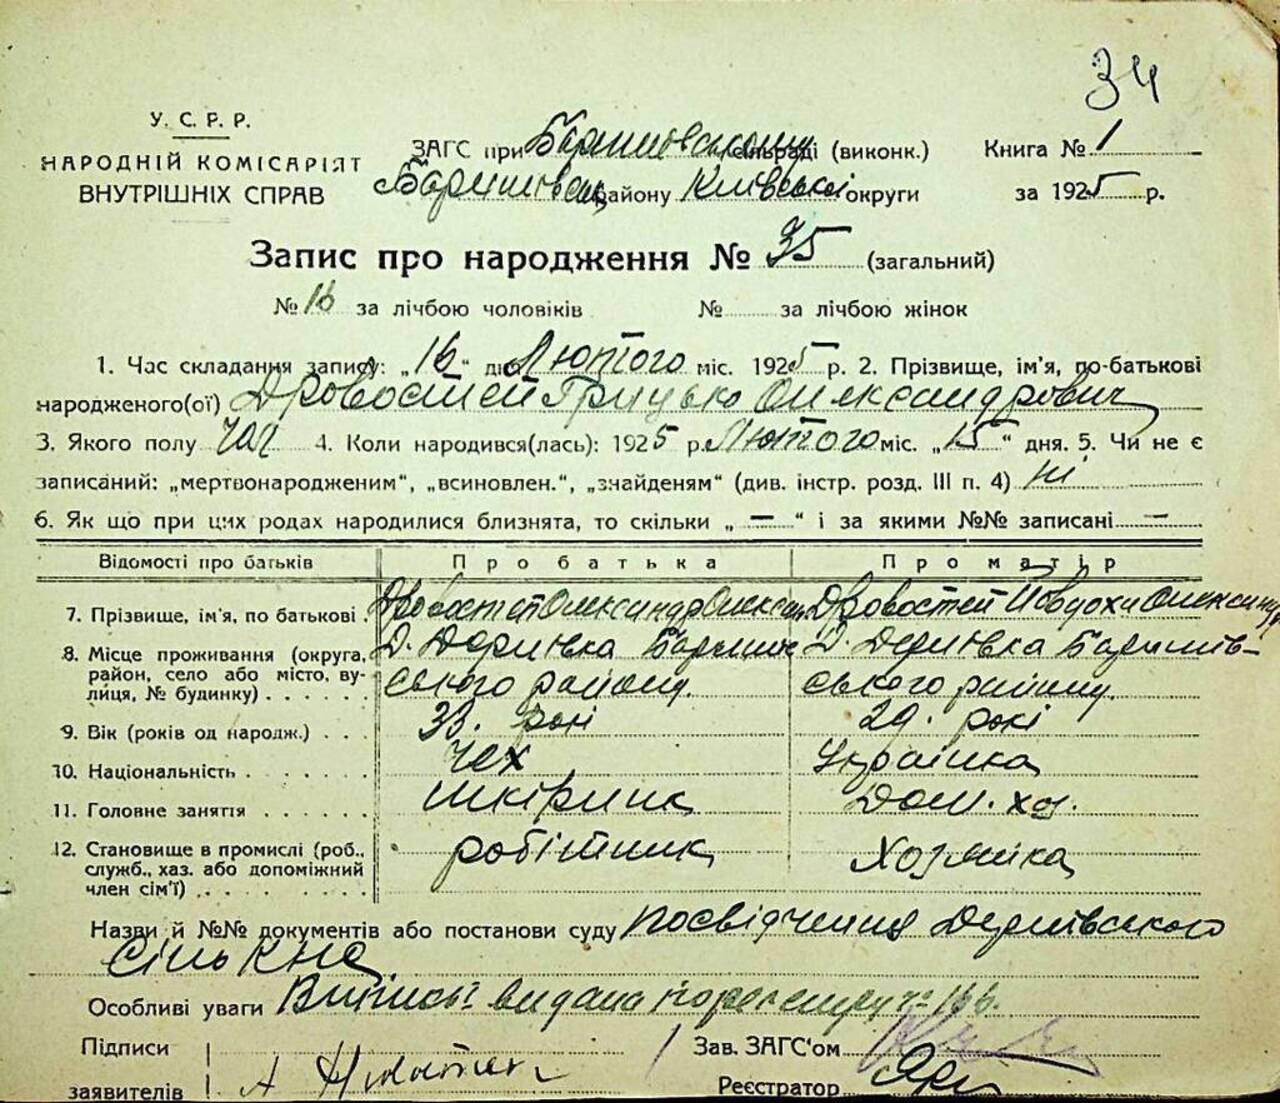 34
У. С. Р. Р.
НАРОДНІЙ КОМІСАРІЯТ
ВНУТРІШНІХ СПРАВ
ЗАГС при Баришівському сільраді (виконк.) Книга № 1
Баришівськ району Київської округи за 1925 р.
Запис про народження № 35 (загальний)
№ 16 за лічбою чоловіків № за лічбою жінок
1. Час складання запису: „16“ дня Лютого міс. 1925 р. 2. Прізвище, ім'я, по-батькові
народженого(ої) Дровостей Грицько Олександрович
3. Якого полу чол 4. Коли народився(лась): 1925 р. Лютого міс. „15“ дня. 5. Чи не є
записаний: „мертвонародженим“, „всиновлен.“, „знайденям“ (див. інстр. розд. III п. 4) ні
6. Як що при цих родах народилися близнята, то скільки „ — “ і за якими №№ записані —
Відомості про батьків Про батька Про матір
7. Прізвище, ім'я, по батькові Дровостей Олександр Олексан. Дровостей Йовдоха Олександр
8. Місце проживання (округа, Д. Дернівка Баришів Д. Дернівка Баришів-
район, село або місто, ву- ського району. ського району.
лиця, № будинку)
9. Вік (років од народж.) 33. рокі 29. рокі
10. Національність чех Українка
11. Головне занятія шкірник Дом. хоз.
12. Становище в промислі (роб., робітник Хозяйка
служб., хаз. або допоміжний
член сім'ї)
Назви й №№ документів або постанови суду посвідчення Дернівського
сільКНС
Особливі уваги Випись видана по реєстру № 166.
Підписи Зав. ЗАГС'ом
заявителів Реєстратор